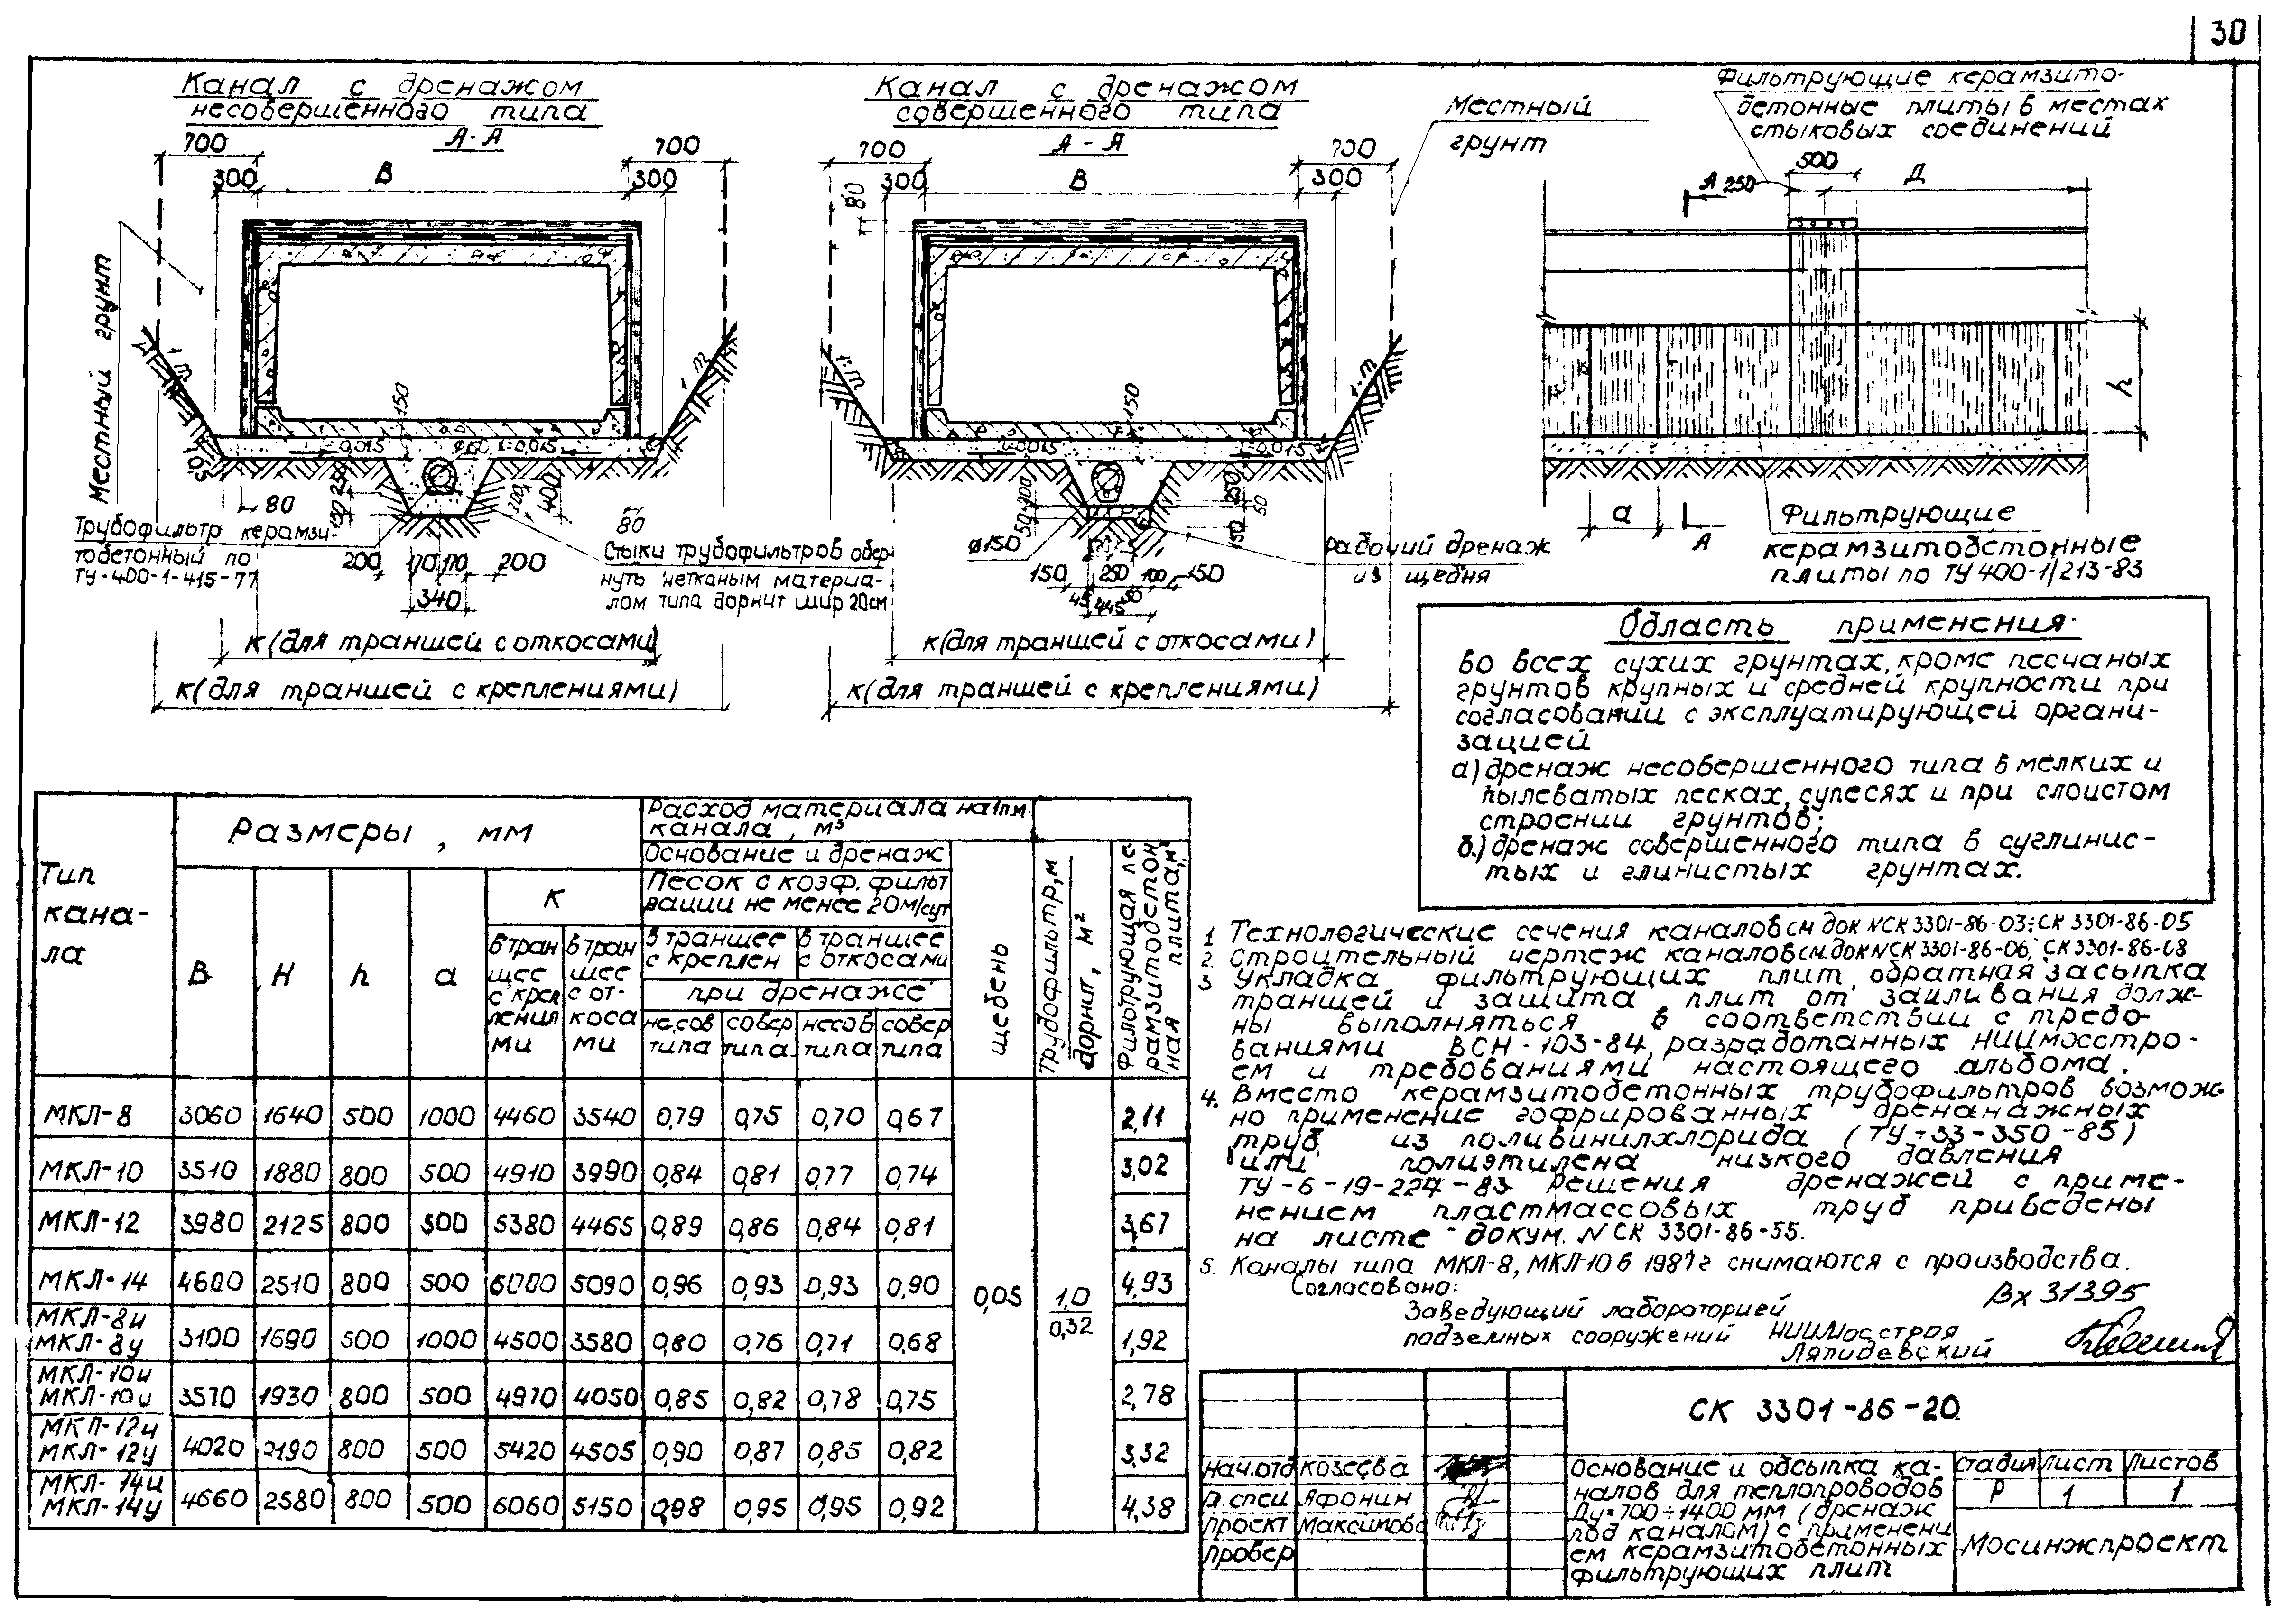 30
Канал с дренажом
несовершенного типа
А-А
700
700
300
В
300
Местный грунт
1:m
1:m
150
i=0,015
i=0,015
80
80
400
Трубофильтр керамзи-
тобетонный по
ТУ-400-1-415-77
200
170
170
200
340
Стыки трубофильтров обер-
нуть нетканым материа-
лом типа дорнит шир 20см
К (для траншей с откосами)
К (для траншей с креплениями)
Канал с дренажом
совершенного типа
А-А
700
700
80
300
В
300
Местный
грунт
1:m
1:m
150
i=0,015
i=0,015
250
50
150
ø150
150
250
100
150
45
445
Рабочий дренаж
из щебня
К (для траншей с откосами)
К (для траншей с креплениями)
Фильтрующие керамзито-
бетонные плиты в местах
стыковых соединений
500
А
250
Д
h
а
А
Фильтрующие
керамзитобетонные
плиты по ТУ 400-1/213-83
Область применения.
во всех сухих грунтах, кроме песчаных
грунтов крупных и средней крупности при
согласовании с эксплуатирующей органи-
зацией
а) дренаж несовершенного типа в мелких и
пылеватых песках, супесях и при слоистом
строении грунтов;
б.) дренаж совершенного типа в суглинис-
тых и глинистых грунтах.
Тип кана-ла
Размеры, мм
Расход материала на 1п.м
канала, м³
Основание и дренаж
Песок с коэф. фильт
рации не менее 20м/сут
В
Н
h
а
К
в тран щее с креп ления ми
в тран шее с от- коса ми
в траншее с креплен
в траншее с откосами
при дренаже
несов типа
совер типа
несов типа
совер типа
щебень
Трубофильтр, м
дорнит, м²
Фильтрующая ке-
рамзитобетон
ная плита, м²
МКЛ-8 3060 1640 500 1000 4460 3540 0,79 0,75 0,70 0,67 2,11
МКЛ-10 3510 1880 800 500 4910 3990 0,84 0,81 0,77 0,74 3,02
МКЛ-12 3980 2125 800 500 5380 4465 0,89 0,86 0,84 0,81 3,67
МКЛ-14 4600 2510 800 500 6000 5090 0,96 0,93 0,93 0,90 4,93
0,05
1,0
0,32
МКЛ-8и
МКЛ-8у 3100 1690 500 1000 4500 3580 0,80 0,76 0,71 0,68 1,92
МКЛ-10и
МКЛ-10у 3570 1930 800 500 4970 4050 0,85 0,82 0,78 0,75 2,78
МКЛ-12и
МКЛ-12у 4020 2190 800 500 5420 4505 0,90 0,87 0,85 0,82 3,32
МКЛ-14и
МКЛ-14у 4660 2580 800 500 6060 5150 0,98 0,95 0,95 0,92 4,38
1 Технологические сечения каналов см док N СК 3301-86-03; СК 3301-86-05
2. Строительный чертеж каналов см. док N СК 3301-86-06; СК 3301-86-08
3 Укладка фильтрующих плит, обратная засыпка
траншей и защита плит от заиливания долж-
ны выполняться в соответствии с требо-
ваниями ВСН-103-84, разработанных НИИмосстро-
ем и требованиями настоящего альбома.
4. Вместо керамзитобетонных трубофильтров возмож-
но применение гофрированных дренанажных
труб из поливинилхлорида (ТУ-33-350-85)
или полиэтилена низкого давления
ТУ-6-19-224-83 Решения дренажей с приме-
нением пластмассовых труб приведены
на листе - докум. N СК 3301-86-55.
5. Каналы типа МКЛ-8, МКЛ-10 в 1987г снимаются с производства.
Согласовано:
Заведующий лабораторией
подземных сооружений НИИМосстроя
Ляпидевский
Вх 31395
СК 3301-86-20
Нач.отд Козеева
Гл. спец Афонин
Проект Максимова
Провер
Основание и обсыпка ка-
налов для теплопроводов
Ду=700÷1400 мм (дренаж
под каналом) с применени
ем керамзитобетонных
фильтрующих плит
Стадия Лист Листов
Р 1 1
Мосинжпроект